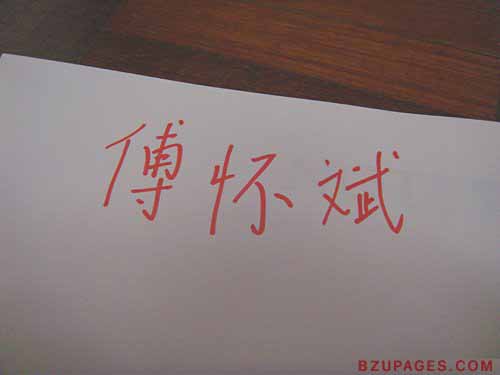 傅怀斌
BZUPAGES.COM